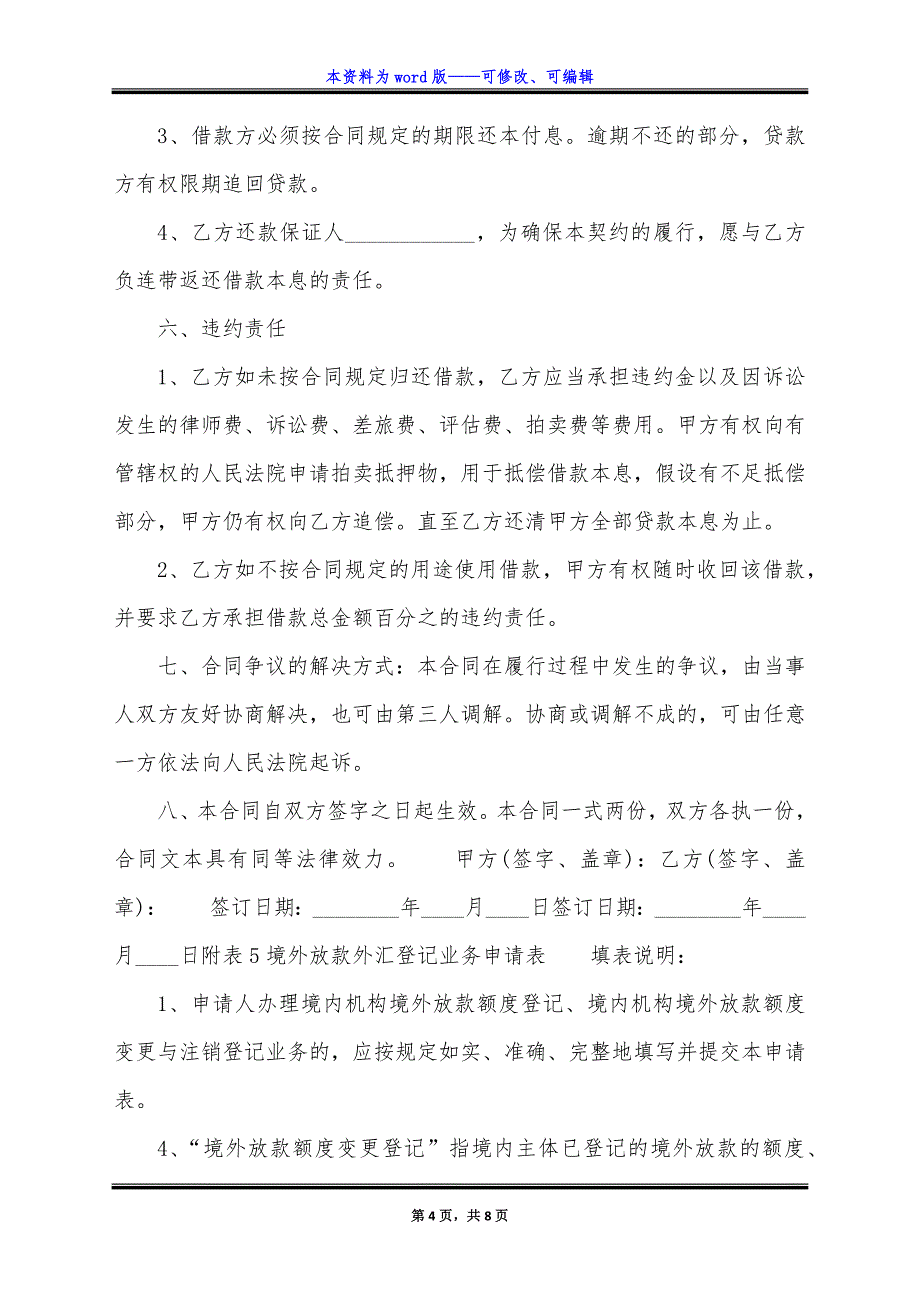 本资料为 word 版——可修改、可编辑
3、借款方必须按合同规定的期限还本付息。逾期不还的部分，贷款
方有权限期追回贷款。
4、乙方还款保证人____________，为确保本契约的履行，愿与乙方
负连带返还借款本息的责任。
六、违约责任
1、乙方如未按合同规定归还借款，乙方应当承担违约金以及因诉讼
发生的律师费、诉讼费、差旅费、评估费、拍卖费等费用。甲方有权向有
管辖权的人民法院申请拍卖抵押物，用于抵偿借款本息，假设有不足抵偿
部分，甲方仍有权向乙方追偿。直至乙方还清甲方全部贷款本息为止。
2、乙方如不按合同规定的用途使用借款，甲方有权随时收回该借款，
并要求乙方承担借款总金额百分之的违约责任。
七、合同争议的解决方式：本合同在履行过程中发生的争议，由当事
人双方友好协商解决，也可由第三人调解。协商或调解不成的，可由任意
一方依法向人民法院起诉。
八、本合同自双方签字之日起生效。本合同一式两份，双方各执一份，
合同文本具有同等法律效力。　　甲方(签字、盖章)：乙方(签字、盖
章)：　　签订日期：________年____月____日签订日期：________年____
月____日附表 5 境外放款外汇登记业务申请表　　填表说明：
1、申请人办理境内机构境外放款额度登记、境内机构境外放款额度
变更与注销登记业务的，应按规定如实、准确、完整地填写并提交本申请
表。
4、“境外放款额度变更登记”指境内主体已登记的境外放款的额度、
第 4 页，共 8 页